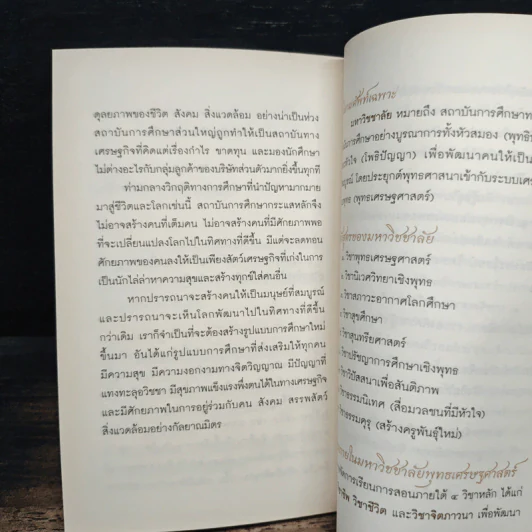 ดุลยภาพของชีวิต สังคม สิ่งแวดล้อม อย่างน่าเป็นห่วง
สถาบันการศึกษาส่วนใหญ่ถูกทำให้เป็นสถาบันทาง
เศรษฐกิจที่คิดแต่เรื่องกำไร ขาดทุน และมองนักศึกษา
ไม่ต่างอะไรกับกลุ่มลูกค้าของบริษัทส่วนตัวมากยิ่งขึ้นทุกที
ท่ามกลางวิกฤติทางการศึกษาที่นำปัญหามากมาย
มาสู่ชีวิตและโลกเช่นนี้ สถาบันการศึกษากระแสหลักจึง
ไม่อาจสร้างคนที่เต็มคน ไม่อาจสร้างคนที่มีศักยภาพพอ
ที่จะเปลี่ยนแปลงโลกไปในทิศทางที่ดีขึ้น มีแต่จะลดทอน
ศักยภาพของคนลงให้เป็นเพียงสัตว์เศรษฐกิจที่เก่งในการ
เป็นนักไล่ล่าหาความสุขและสร้างทุกข์ใส่คนอื่น
หากปรารถนาจะสร้างคนให้เป็นมนุษย์ที่สมบูรณ์
และปรารถนาจะเห็นโลกพัฒนาไปในทิศทางที่ดีขึ้น
กว่าเดิม เราก็จำเป็นที่จะต้องสร้างรูปแบบการศึกษาใหม่
ขึ้นมา อันได้แก่รูปแบบการศึกษาที่ส่งเสริมให้ทุกคน
มีความสุข มีความงอกงามทางจิตวิญญาณ มีปัญญาที่
แทงทะลุอวิชชา มีสุขภาพแข็งแรงพึ่งตนได้ในทางเศรษฐกิจ
และมีศักยภาพในการอยู่ร่วมกับคน สังคม สรรพสัตว์
สิ่งแวดล้อมอย่างกัลยาณมิตร
ศัพท์เฉพาะ
มหาวิชชาลัย หมายถึง สถาบันการศึกษาท
การศึกษาอย่างบูรณาการทั้งหัวสมอง (พุทธิ
หัวใจ (โพธิปัญญา) เพื่อพัฒนาคนให้เป็น
โดยประยุกต์พุทธศาสนาเข้ากับระบบเศ
(พุทธเศรษฐศาสตร์)
ของมหาวิชชาลัย
วิชาพุทธเศรษฐศาสตร์
วิชานิเวศวิทยาเชิงพุทธ
วิชาสภาวะอากาศโลกศึกษา
วิชาสุขศึกษา
วิชาสุนทรียศาสตร์
วิชาปรัชญาการศึกษาเชิงพุทธ
วิชาวิปัสสนาเพื่อสันติภาพ
วิชาธรรมนิเทศ (สื่อมวลชนที่มีหัวใจ)
วิชาธรรมคุรุ (สร้างครูพันธุ์ใหม่)
ภายในมหาวิชชาลัยพุทธเศรษฐศาสตร์
การเรียนการสอนภายใต้ ๔ วิชาหลัก ได้แก่
วิชาชีวิต และวิชาจิตภาวนา เพื่อพัฒนา